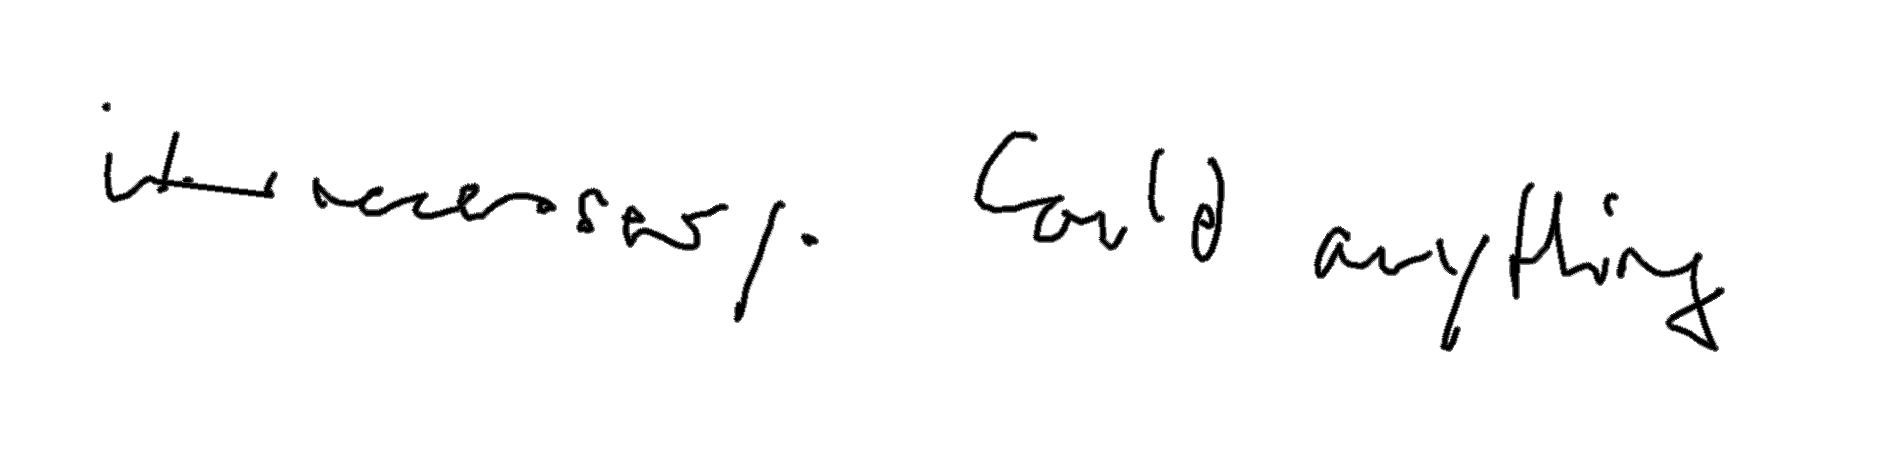 it necessary. Could anything